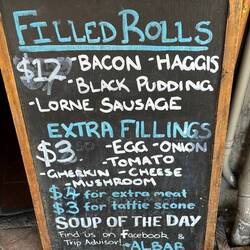 FILLED ROLLS
$12 - BACON - HAGGIS
- BLACK PUDDING
- LORNE SAUSAGE
EXTRA FILLINGS
$3 - EGG - ONION
- TOMATO
GHERKIN - CHEESE
- MUSHROOM
$4 for extra meat
$3 for tattie scone
SOUP OF THE DAY
Find us on facebook &
Trip Advisor! - ALBAR